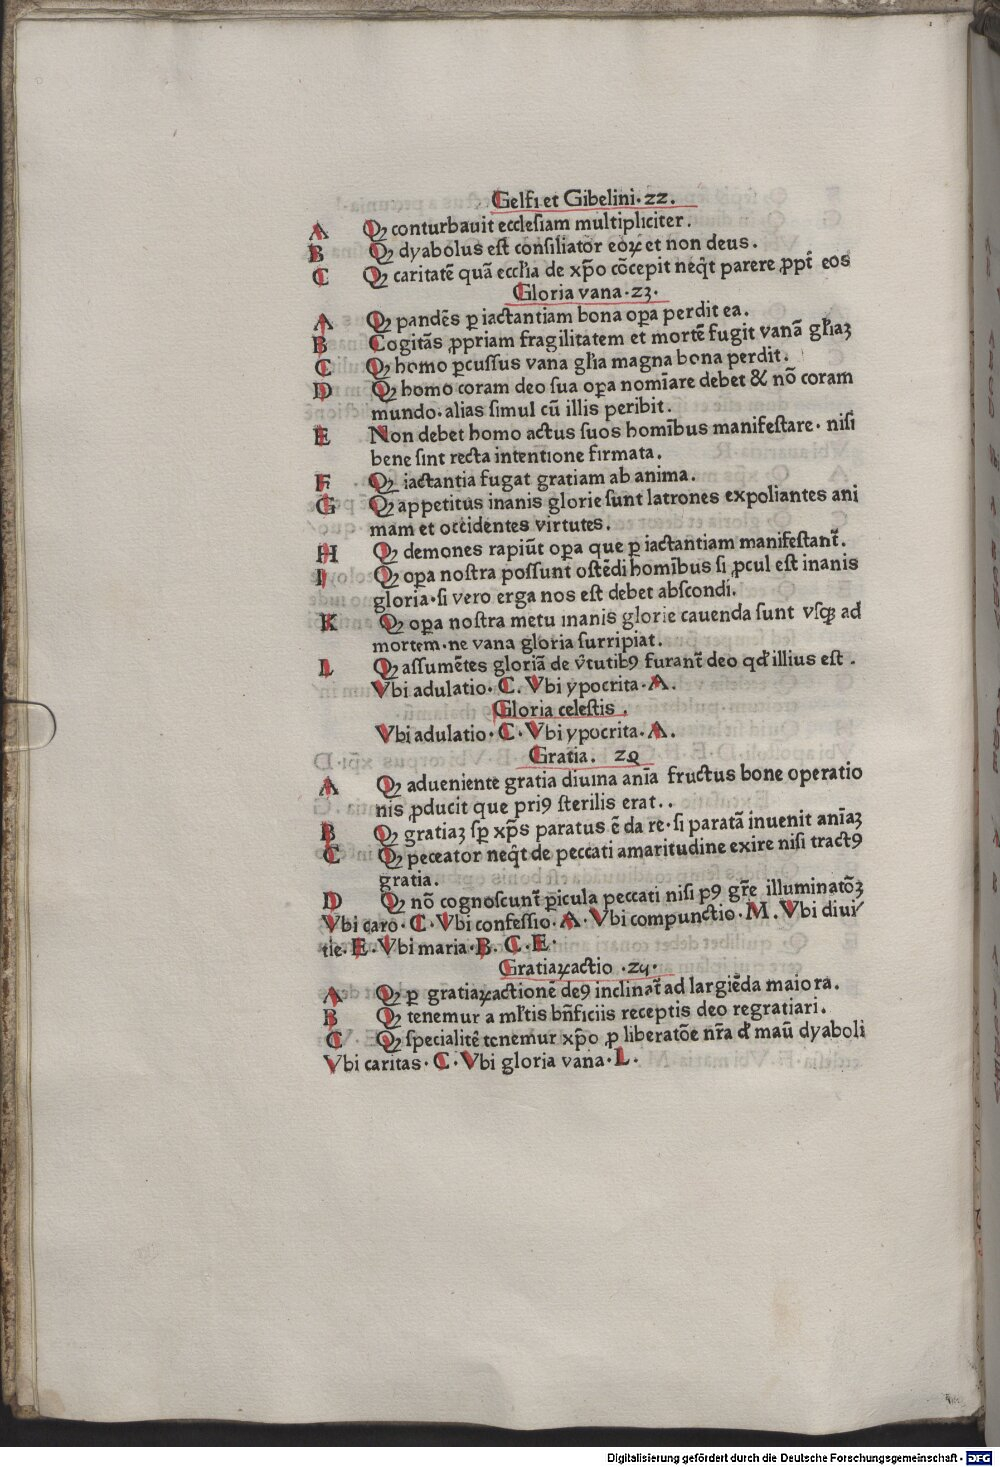 Gelfi et Gibelini · 22 .
A Qꝫ conturbauit ecclesiam multipliciter .
B Qꝫ dyabolus est consiliator eoꝝ et non deus .
C Qꝫ caritatē quā ecclia de xp̄o cōcepit neq̄t parere ꝓpt̄ eos
Gloria vana · 23 ·
A Qꝫ pandēs ꝑ iactantiam bona oꝑa perdit ea .
B Cogitās ꝓpriam fragilitatem et mortē fugit vanā gl̄iaꝫ
C Qꝫ homo ꝑcussus vana gl̄ia magna bona perdit .
D Qꝫ homo coram deo sua oꝑa nomīare debet & nō coram
mundo · alias simul cū illis peribit .
E Non debet homo actus suos homībus manifestare · nisi
bene sint recta intentione firmata .
F Qꝫ iactantia fugat gratiam ab anima .
G Qꝫ appetitus inanis glorie sunt latrones expoliantes ani
mam et occidentes virtutes .
H Qꝫ demones rapiūt oꝑa que ꝑ iactantiam manifestant̄ .
I Qꝫ oꝑa nostra possunt ostēdi homībus si ꝓcul est inanis
gloria · si vero erga nos est debet abscondi .
K Qꝫ oꝑa nostra metu inanis glorie cauenda sunt vsqꝫ ad
mortem · ne vana gloria surripiat .
L Qꝫ assumētes gloriā de v̄tutibꝰ furant̄ deo qd̄ illius est .
Vbi adulatio · C . Vbi ypocrita · A .
Gloria celestis .
Vbi adulatio · C · Vbi ypocrita · A .
Gratia . 24
A Qꝫ adueniente gratia diuina anīa fructus bone operatio
nis ꝓducit que priꝰ sterilis erat . .
B Qꝫ gratiaꝫ sꝑ xp̄s paratus ē da re · si paratā inuenit anīaꝫ
C Qꝫ peccator neq̄t de peccati amaritudine exire nisi tractꝰ
gratia .
D Qꝫ nō cognoscunt̄ ꝑicula peccati nisi pꝰ gr̄e illuminatōꝫ
Vbi caro · C · Vbi confessio · A · Vbi compunctio · M . Vbi diui/
tie · E · Vbi maria · B . C . E ·
Gratiaꝝ actio · 25 ·
A Qꝫ ꝑ gratiaꝝ actionē deꝰ inclinat̄ ad largiēda maiora .
B Qꝫ tenemur a ml̄tis bn̄ficiis receptis deo regratiari .
C Qꝫ specialitē tenemur xp̄o ꝓ liberatōe nr̄a d̄ manū dyaboli
Vbi caritas · C · Vbi gloria vana · L ·
Digitalisierung gefördert durch die Deutsche Forschungsgemeinschaft · DFG